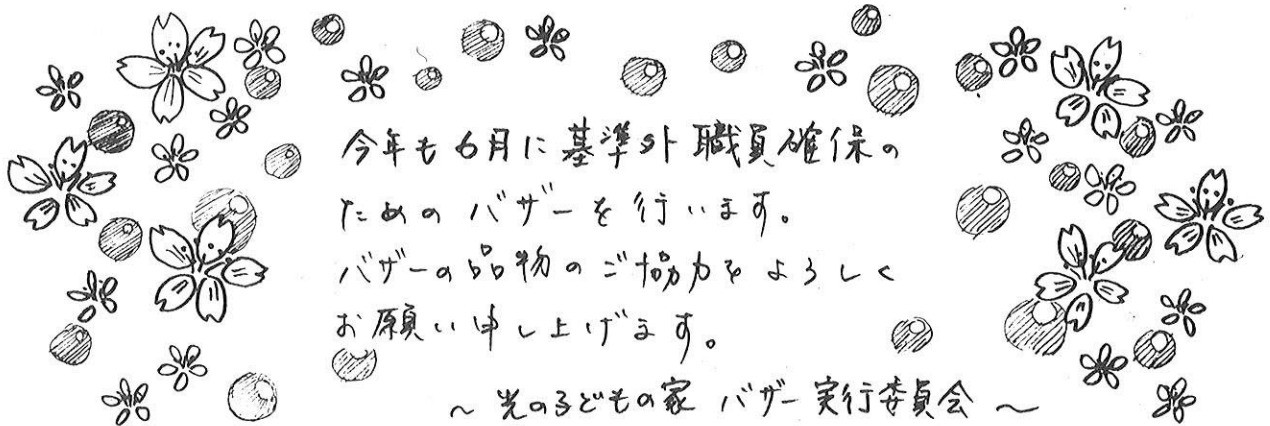 今年も6月に基準外職員確保の
ためのバザーを行います。
バザーの品物のご協力をよろしく
お願い申し上げます。
～光の子どもの家 バザー実行委員会～